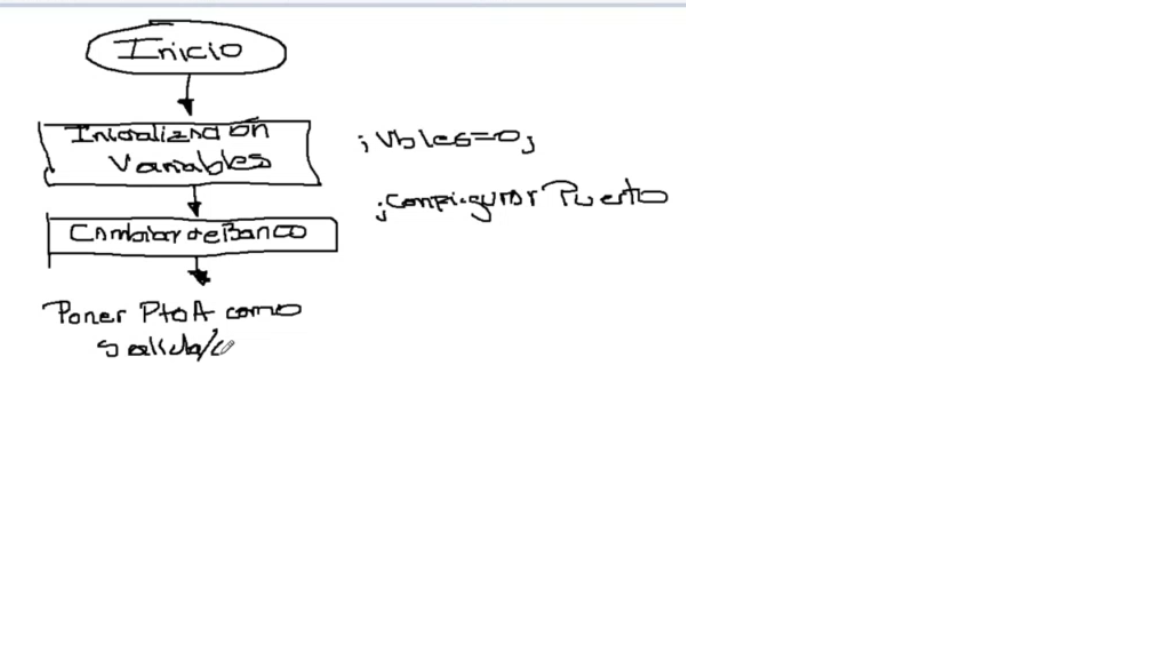 Inicio
Inicialización
Variables
;Vbles=0;
;Configurar Puerto
Cambiar de Banco
Poner PtoA como
salida/